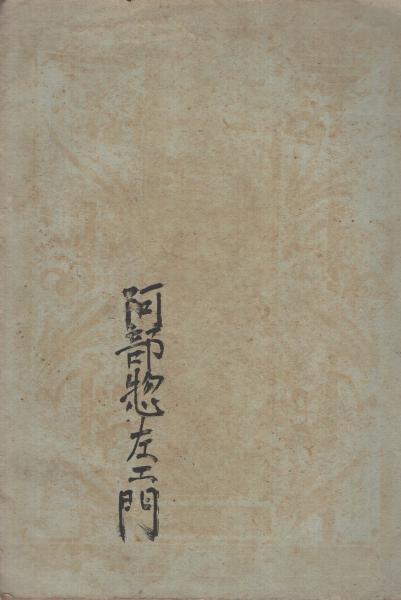 阿部惣左エ門